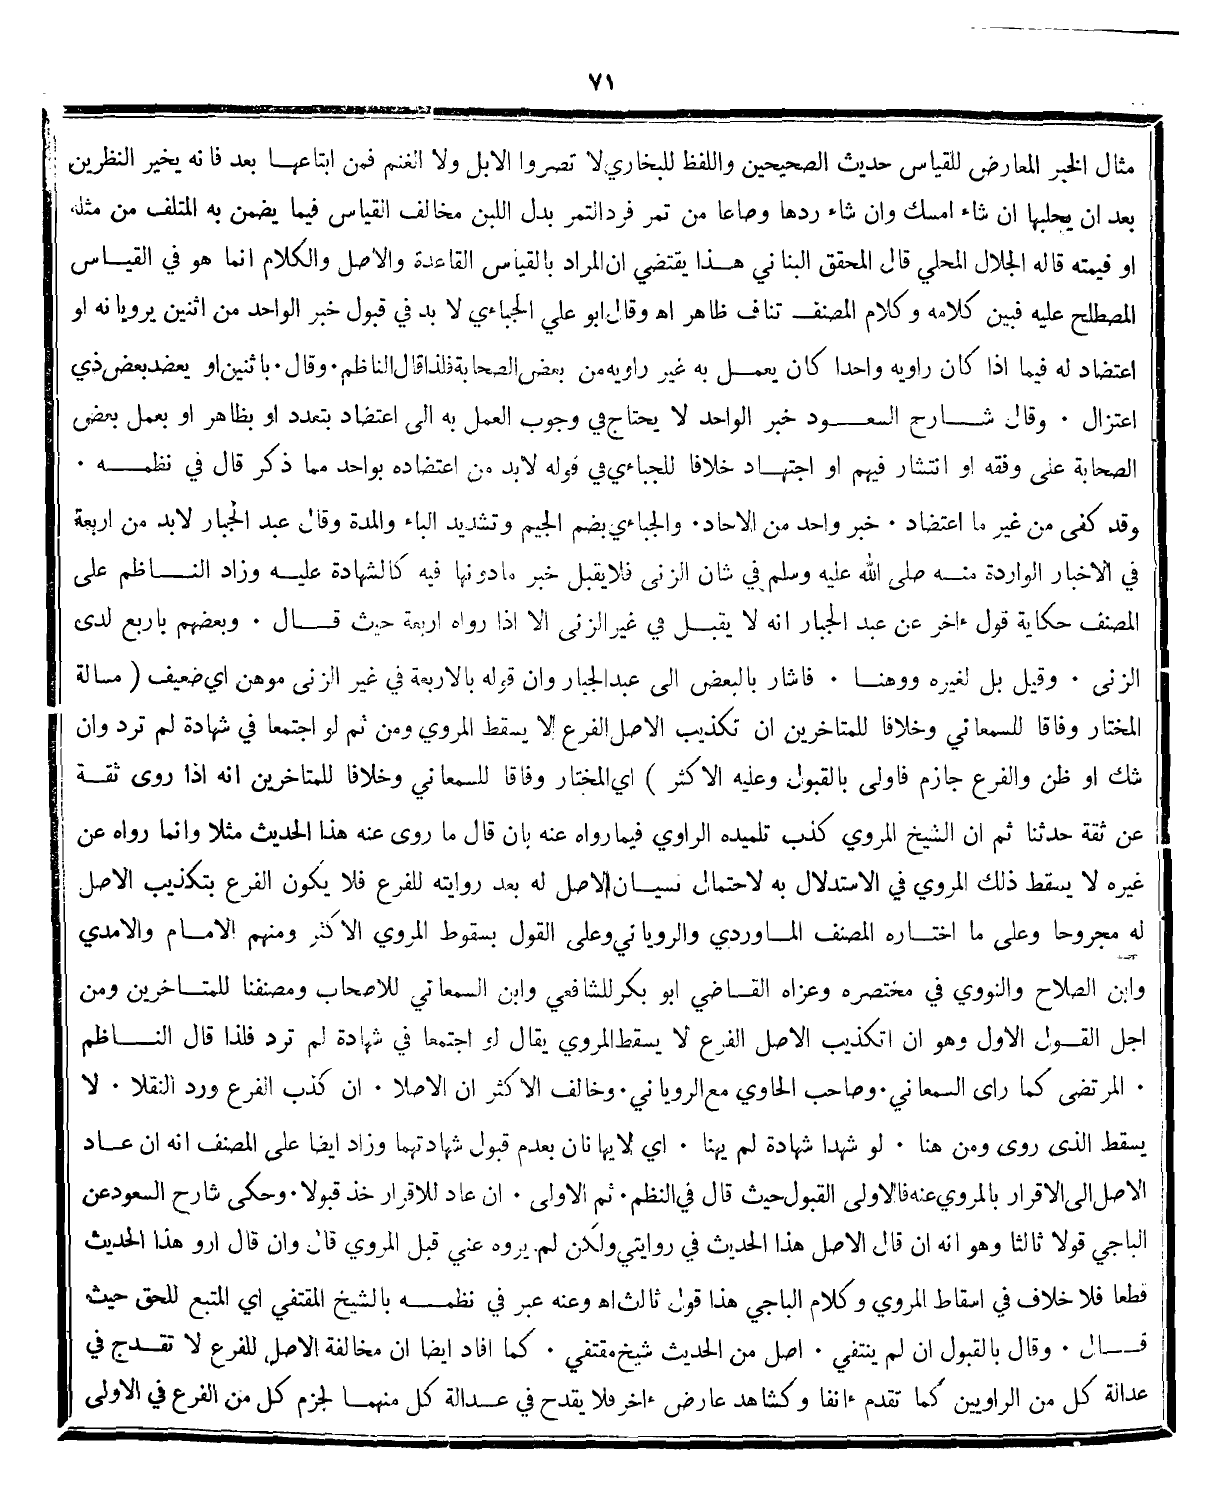 ٧١
مثال الخبر المعارض للقياس حديث الصحيحين واللفظ للبخاري لا تصروا الابل ولا الغنم فمن ابتاعها بعد فانه يخير النظرين
بعد ان يحلبها ان شاء امسك وان شاء ردها وصاعا من تمر فرد التمر بدل اللبن مخالف القياس فيما يضمن به المتلف من مثله
او قيمته قاله الجلال المحلي قال المحقق البناني هذا يقتضي ان المراد بالقياس القاعدة والاصل والكلام انما هو في القياس
المصطلح عليه فبين كلامه وكلام المصنف تناف ظاهر اه وقال ابو علي الجباءي لا بد في قبول خبر الواحد من اثنين يرويانه او
اعتضاد له فيما اذا كان راويه واحدا كان يعمل به غير راويه من بعض الصحابة فلذا قال الناظم ٠ وقال ٠ باثنين او يعضد بعض ذي
اعتزال ٠ وقال شارح السعود خبر الواحد لا يحتاج في وجوب العمل به الى اعتضاد بتعدد او بظاهر او بعمل بعض
الصحابة على وفقه او انتشار فيهم او اجتهاد خلافا للجباءي في قوله لابد من اعتضاده بواحد مما ذكر قال في نظمه ٠
وقد كفى من غير ما اعتضاد ٠ خبر واحد من الاحاد ٠ والجباءي بضم الجيم وتشديد الباء والمدة وقال عبد الجبار لابد من اربعة
في الاخبار الواردة منه صلى الله عليه وسلم في شان الزنى فلا يقبل خبر مادونها فيه كالشهادة عليه وزاد الناظم على
المصنف حكاية قول ءاخر عن عبد الجبار انه لا يقبل في غير الزنى الا اذا رواه اربعة حيث قال ٠ وبعضهم باربع لدى
الزنى ٠ وقيل بل لغيره ووهنا ٠ فاشار بالبعض الى عبد الجبار وان قوله بالاربعة في غير الزنى موهن اي ضعيف ( مسالة
المختار وفاقا للسمعاني وخلافا للمتاخرين ان تكذيب الاصل الفرع لا يسقط المروي ومن ثم لو اجتمعا في شهادة لم ترد وان
شك او ظن والفرع جازم فاولى بالقبول وعليه الاكثر ) اي المختار وفاقا للسمعاني وخلافا للمتاخرين انه اذا روى ثقة
عن ثقة حدثنا ثم ان الشيخ المروي كذب تلميذه الراوي فيما رواه عنه بان قال ما روى عنه هذا الحديث مثلا وانما رواه عن
غيره لا يسقط ذلك المروي في الاستدلال به لاحتمال نسيان الاصل له بعد روايته للفرع فلا يكون الفرع بتكذيب الاصل
له مجروحا وعلى ما اختاره المصنف الماوردي والروياني وعلى القول بسقوط المروي الاكثر ومنهم الامام والامدي
وابن الصلاح والنووي في مختصره وعزاه القاضي ابو بكر للشافعي وابن السمعاني للاصحاب ومصنفنا للمتاخرين ومن
اجل القول الاول وهو ان اتكذيب الاصل الفرع لا يسقط المروي يقال لو اجتمعا في شهادة لم ترد فلذا قال الناظم
٠ المرتضى كما راى السمعاني ٠ وصاحب الحاوي مع الروياني ٠ وخالف الاكثر ان الاصلا ٠ ان كذب الفرع ورد النقلا ٠ لا
يسقط الذى روى ومن هنا ٠ لو شهدا شهادة لم يهنا ٠ اي لا يهانان بعدم قبول شهادتهما وزاد ايضا على المصنف انه ان عاد
الاصل الى الاقرار بالمروي عنه فالاولى القبول حيث قال في النظم ٠ ثم الاولى ٠ ان عاد للاقرار خذ قبولا ٠ وحكى شارح السعود عن
الباجي قولا ثالثا وهو انه ان قال الاصل هذا الحديث في روايتي ولكن لم يروه عني قبل المروي قال وان قال ارو هذا الحديث
قطعا فلا خلاف في اسقاط المروي وكلام الباجي هذا قول ثالث اه وعنه عبر في نظمه بالشيخ المقتفي اي المتبع للحق حيث
قال ٠ وقال بالقبول ان لم ينتفي ٠ اصل من الحديث شيخ مقتفي ٠ كما افاد ايضا ان مخالفة الاصل للفرع لا تقدح في
عدالة كل من الراويين كما تقدم ءانفا وكشاهد عارض ءاخر فلا يقدح في عدالة كل منهما لجزم كل من الفرع في الاولى